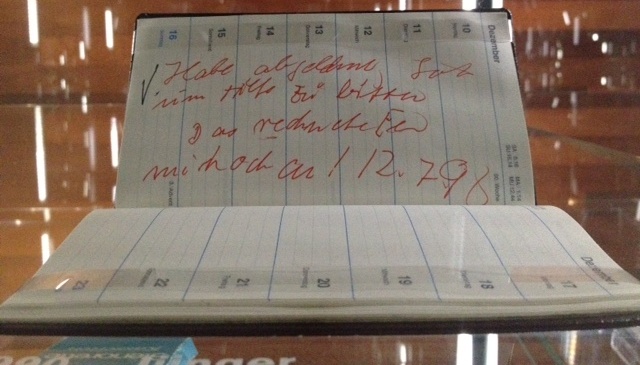 Dezember
10
11
12
13
14
15
16
Habe abgelehnt, Gott
um Hilfe zu bitten
Das rechnet Er
mir hoch an! 12.7.98
Dezember
17
18
19
20
21
22
23